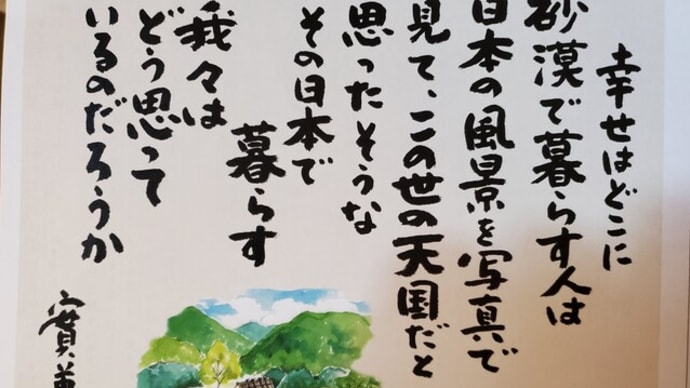 幸せはどこに
砂漠で暮らす人は
日本の風景を写真で
見て、この世の天国だと
思ったそうな
その日本で
暮らす
我々は
どう思って
いるのだろうか